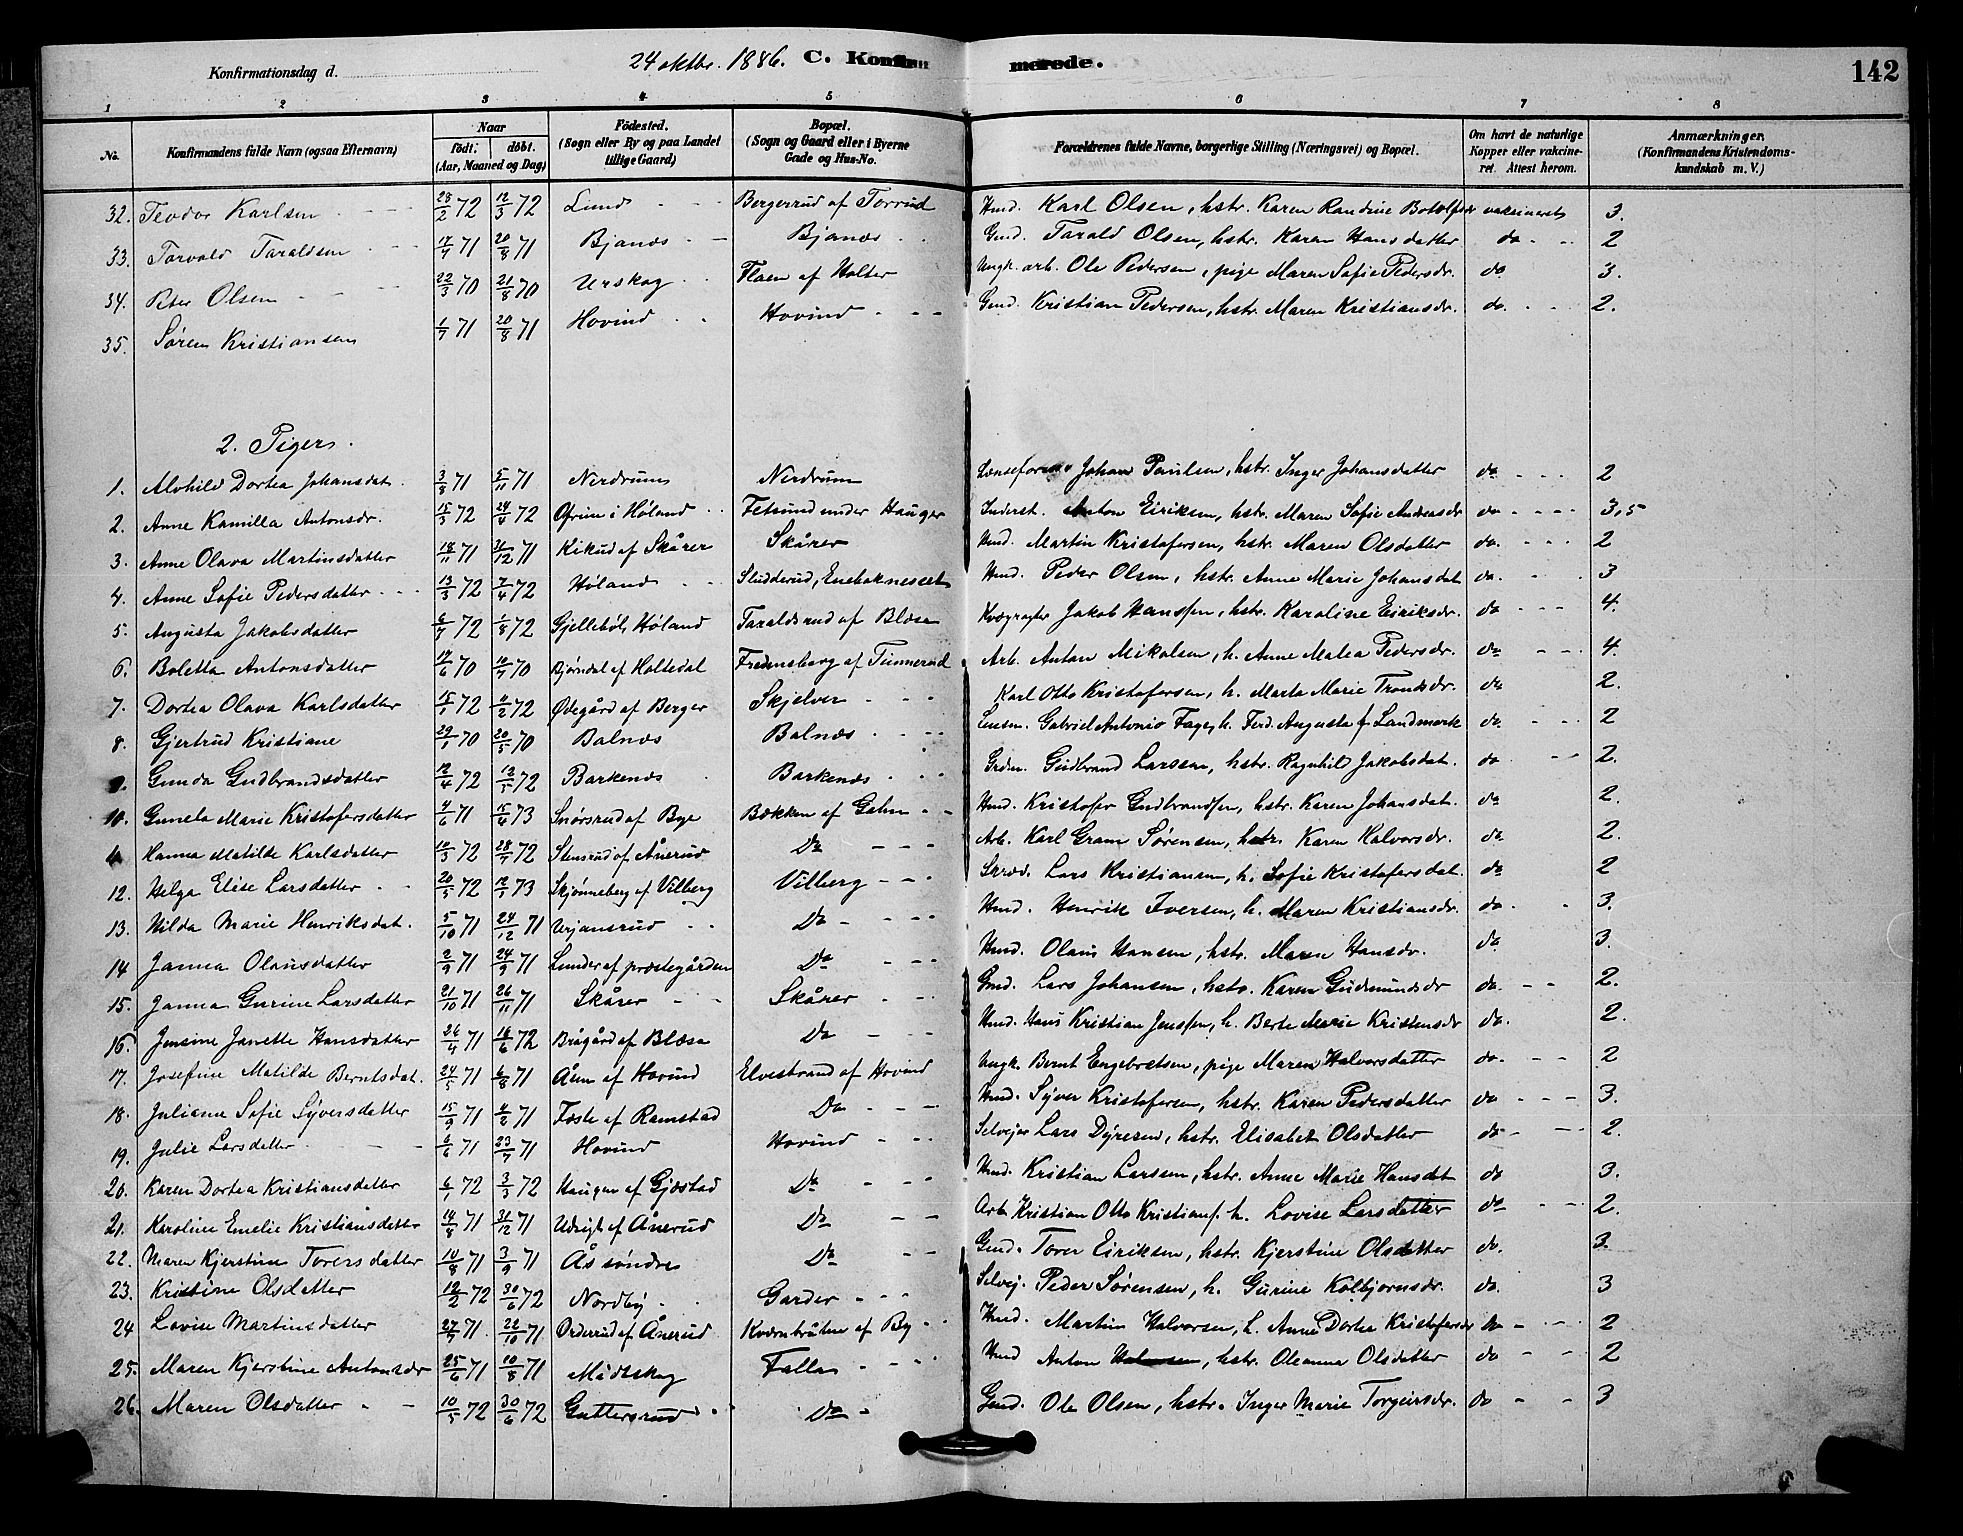 Konfirmationsdag d. 24 oktbr. 1886. C. Konfirmerede. 142
1 2 3 4 5 6 7 8
No. Konfirmandens fulde Navn (ogsaa Efternavn) Naar födt: döbt. (Aar, Maaned og Dag) Födested. (Sogn eller By og paa Landet tillige Gaard) Bopæl. (Sogn og Gaard eller i Byerne Gade og Hus-No. Forældrenes fulde Navne, borgerlige Stilling (Næringsvei) og Bopæl. Om havt de naturlige Kopper eller vakcineret. Attest herom. Anmærkninger. (Konfirmandens Kristendomskundskab m. V.)
32. Teodor Karlsen 28/2 72 12/3 72 Lund Bergerrud af Torrud Hmd. Karl Olsen, hstr. Karen Randine Botolfsdr vakcineret 3.
33. Torvald Taraldsen 17/4 71 20/8 71 Bjanæs Bjanæs Gmd. Tarald Olsen, hstr. Karen Hansdatter do 2
34. Peter Olsen 22/3 70 21/8 70 Urskog Flaen af Holter Ungk. arb. Ole Pedersen, pige Maren Sofie Pedersdr. do 3.
35. Søren Kristiansen 1/7 71 20/8 71 Hovind Hovind Gmd. Kristian Pedersen, hstr. Maren Kristiansdr. do 2.
2. Piger.
1. Alvhild Dortea Johansdat. 3/8 71 5/11 71 Nerdrum Nerdrum Johan Paulsen, hstr. Inger Johansdatter do 2
2. Anne Kamilla Antonsdr. 15/3 72 24/4 72 Ofrim i Høland Fetsund under Hauger Inderst. Anton Eiriksen, hstr. Maren Sofie Andreasdr do 3,5
3. Anne Olava Martinsdatter 18/11 71 31/12 71 Kikud af Skårer Skårer Hmd. Martin Kristofersen, hstr. Maren Olsdatter do. 2
4. Anne Sofie Pedersdatter 13/3 72 7/4 72 Høland Sludderud, Enebaknesset Hmd. Peder Olsen, hstr. Anne Marie Johansdat do. 3
5. Augusta Jakobsdatter 6/7 72 1/8 72 Gjellebøl, Høland Taraldsrud af Blæsa Jakob Hanssen, hstr. Karoline Eiriksdr. do 4.
6. Boletta Antonsdatter 17/6 70 10/7 70 Bjørndal af Holtedal Fredensberg af Tunnerud Arb. Anton Mikalsen, h. Anne Malea Pedersdr. do 4.
7. Dortea Olava Karlsdatter 15/1 72 4/2 72 Ødegård af Berger Skjelver Karl Otto Kristofersen, h. Marta Marie Trondsdr. do 2.
8. Gjertrud Kristiane 29/1 70 20/5 70 Balnæs Balnæs Lensm. Gabriel Antonio Fage, h. Ferd. Augusta f. Landmark do 2
9. Gunda Gudbrandsdatter 12/4 72 12/5 72 Barkenæs Barkenæs Grdm. Gudbrand Larssen, hstr. Ragnhil Jakobsdat. do 2.
10. Gunela Marie Kristofersdatter 4/6 71 15/4 73 Snørsrud af Bye Bækken af Galin Hmd. Kristofer Gudbrandsen, hstr. Karen Johansdat. do 2.
Hanna Matilde Karlsdatter 10/3 72 28/7 72 Stensrud af Ånerud Do Arb. Karl Gram Sørensen, hstr. Karen Halvorsdr. do 2.
12. Helga Elise Larsdatter 20/5 72 12/1 73 Skjønneberg af Vilberg Vilberg Skræd. Lars Kristiansen, h. Sofie Kristofersdat. do 2
13. Hilda Marie Henriksdat. 5/10 71 24/12 71 Urjansrud Do Hmd. Henrik Iversen, h. Maren Kristiansdr. do 3.
14 Janna Olausdatter 2/9 71 24/9 71 Lunder af præstegården Do Hmd. Olaus Hansen, hstr. Maren Hansdr. do 3.
15. Janna Gurine Larsdatter 21/10 71 26/11 71 Skårer Skårer Gmd. Lars Johansen, hstr. Karen Gudmundsdr do 2.
16. Jensine Janette Hansdatter 26/4 71 16/6 72 Brågård af Blæsa Do Hmd. Hans Kristian Jenssen, h. Berte Marie Kristensdr do. 2.
17. Josefine Matilde Berntsdat. 24/5 71 6/8 71 Åen af Hovind Elvestrand af Hovind Ungk. Bernt Engebretsen, pige Maren Halvorsdatter do. 2
18. Juliane Sofie Syversdatter 15/9 71 4/2 71 Fæste af Ramstad Do Hmd. Syver Kristofersen, hstr. Karen Pedersdatter do 3.
19. Julie Larsdatter 6/6 71 23/7 71 Hovind Hovind Selvejer Lars Dyresen, hstr. Elisabet Olsdatter do 2.
20. Karen Dortea Kristiansdatter 6/1 72 3/3 72 Haugen af Gjæstad Do Hmd. Kristian Larsen, hstr. Anne Marie Hansdat do 3.
21. Karoline Emelie Kristiansdatter 14/8 71 31/12 71 Udsigt af Ånerud Do Arb. Kristian Otto Kristians. h. Lovise Larsdatter do 2.
22. Maren Kjerstine Toversdatter 10/8 71 3/9 71 Ås søndre Do Gmd. Tover Eiriksen, hstr. Kjerstine Olsdatter do. 3.
23. Kristine Olsdatter 12/2 72 30/6 72 Nordby Garder Selvej. Peder Sørensen, h. Gurine Kolbjørnsdr. do 3
24 Lovise Martinsdatter 27/7 71 22/10 71 Orderud af Ånerud Kværnbråten af By Hmd. Martin Halvorsen, h. Anne Dortea Kristofersdr do 2
25. Maren Kjerstine Antonsdr 25/6 71 10/8 71 Midtskog Falla Hmd Anton, hstr. Oleanna Olsdatter do 2
26. Maren Olsdatter 10/5 72 30/6 72 Guttersrud Do Gmd. Ole Olsen, hstr. Inger Marie Torgeirsdr. do 3